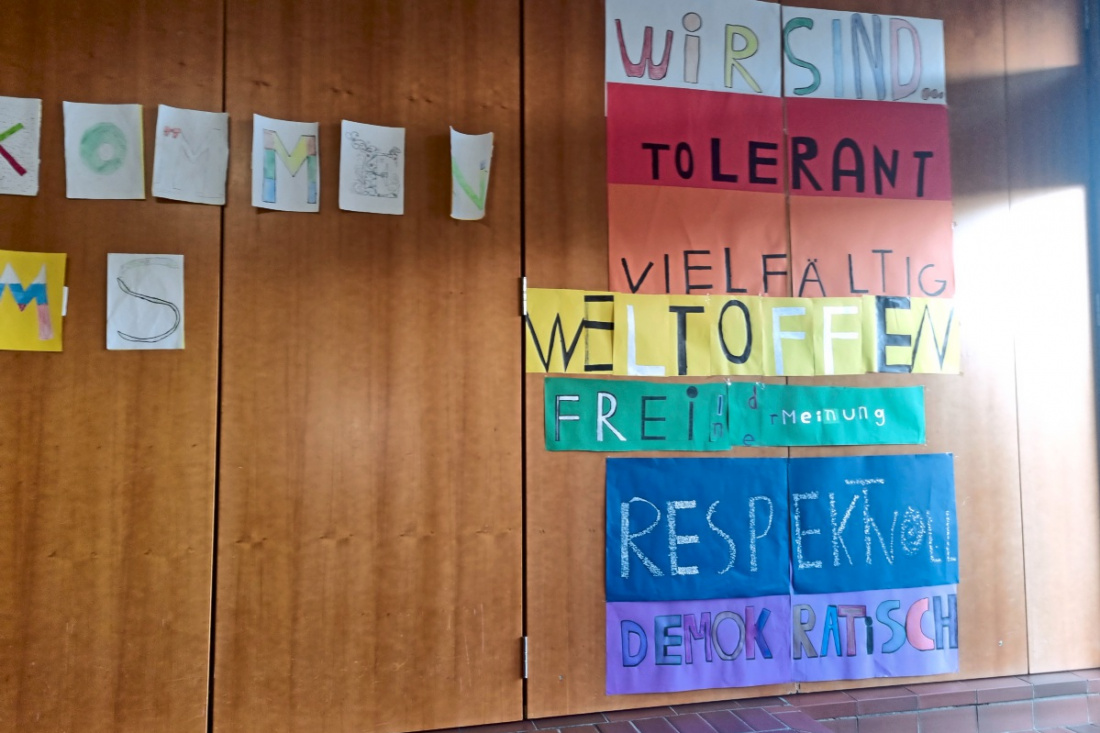 KOMMEN
MS
WiR SIND...
TOLERANT
VIELFÄLTIG
WELTOFFEN
FREi in der Meinung
RESPEKTVOLL
DEMOKRATiSCH